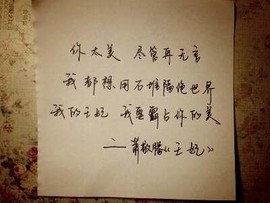 你太美 尽管再无言
我都想用石堆隔绝世界
我的王妃 我要霸占你的美
——萧敬腾《王妃》